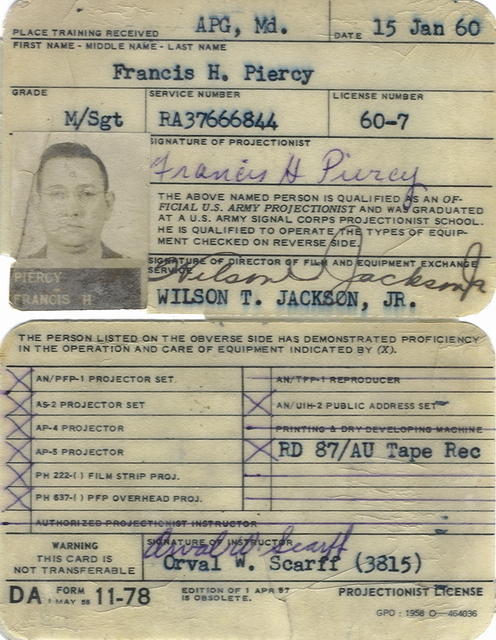 PLACE TRAINING RECEIVED APG, Md. DATE 15 Jan 60
FIRST NAME - MIDDLE NAME - LAST NAME
Francis H. Piercy
GRADE SERVICE NUMBER LICENSE NUMBER
M/Sgt RA37666844 60-7
SIGNATURE OF PROJECTIONIST
Francis H Piercy
THE ABOVE NAMED PERSON IS QUALIFIED AS AN OF-
FICIAL U.S. ARMY PROJECTIONIST AND WAS GRADUATED
AT A U.S. ARMY SIGNAL CORPS PROJECTIONIST SCHOOL.
HE IS QUALIFIED TO OPERATE THE TYPES OF EQUIP-
MENT CHECKED ON REVERSE SIDE.
SIGNATURE OF DIRECTOR OF FILM AND EQUIPMENT EXCHANGE
SERVICE
Wilson T Jackson Jr
WILSON T. JACKSON, JR.
PIERCY
FRANCIS H
THE PERSON LISTED ON THE OBVERSE SIDE HAS DEMONSTRATED PROFICIENCY
IN THE OPERATION AND CARE OF EQUIPMENT INDICATED BY (X).
X AN/PFP-1 PROJECTOR SET
X AS-2 PROJECTOR SET
X AP-4 PROJECTOR
X AP-5 PROJECTOR
X PH 222-( ) FILM STRIP PROJ.
X PH 637-( ) PFP OVERHEAD PROJ.
AN/TFP-1 REPRODUCER
X AN/UIH-2 PUBLIC ADDRESS SET
PRINTING & DRY DEVELOPING MACHINE
X RD 87/AU Tape Rec
AUTHORIZED PROJECTIONIST INSTRUCTOR
WARNING
THIS CARD IS
NOT TRANSFERABLE
SIGNATURE OF INSTRUCTOR
Orval W Scarff
Orval W. Scarff (3815)
DA FORM 11-78
1 MAY 58
EDITION OF 1 APR 57
IS OBSOLETE.
PROJECTIONIST LICENSE
GPO : 1958 O - 464036